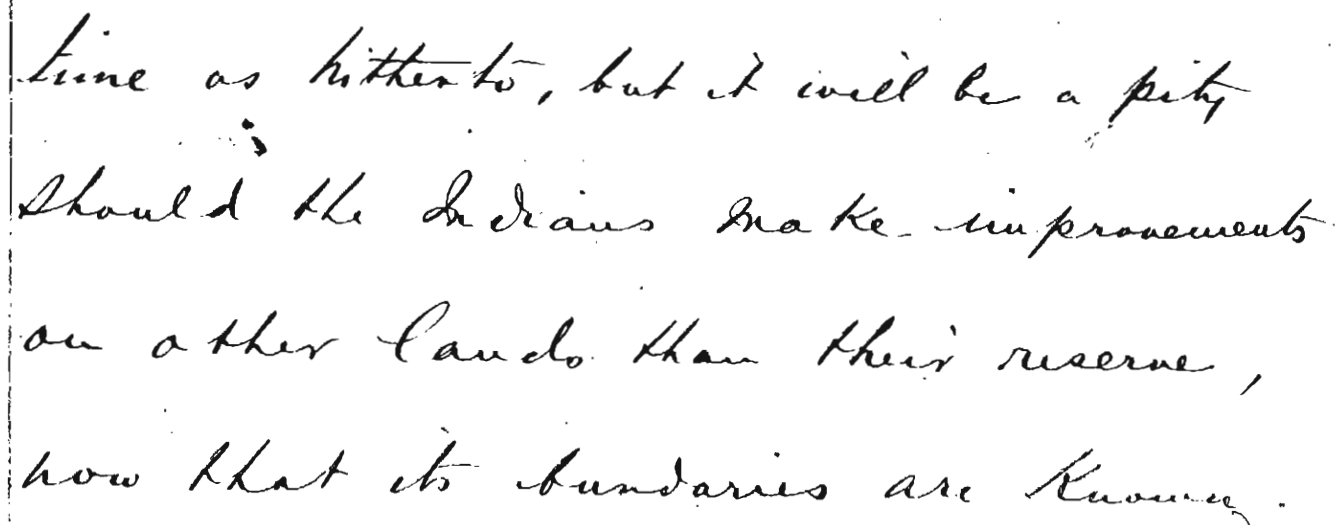 time as hitherto, but it will be a pity
should the Indians make improvements
on other lands than their reserve,
now that its bundaries are known.